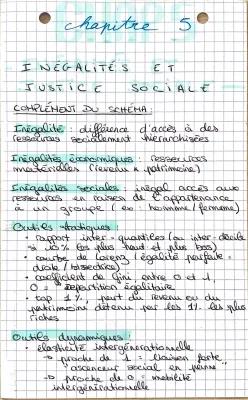 chapitre 5
INÉGALITÉS ET
JUSTICE SOCIALE
COMPLÉMENT DU SCHÉMA :
Inégalité : différence d'accès à des
ressources socialement hiérarchisées
Inégalités économiques : ressources
matérielles (revenus & patrimoine)
Inégalités sociales : inégal accès aux
ressources en raison de l'appartenance
à un groupe (ex : homme/femme)
Outils statiques :
• rapport inter-quantiles (ou inter-décile
→ 10% les plus haut et plus bas)
• courbe de Lorenz (égalité parfaite =
droite/bissectrice)
• coefficient de Gini entre 0 et 1
0 = répartition égalitaire
• top 1%, part du revenu ou du
patrimoine détenu par les 1% les plus
riches
Outils dynamiques :
• élasticité intergénérationnelle
→ proche de 1 = liaison forte,
"ascenseur social en panne"
→ proche de 0 = mobilité
intergénérationnelle